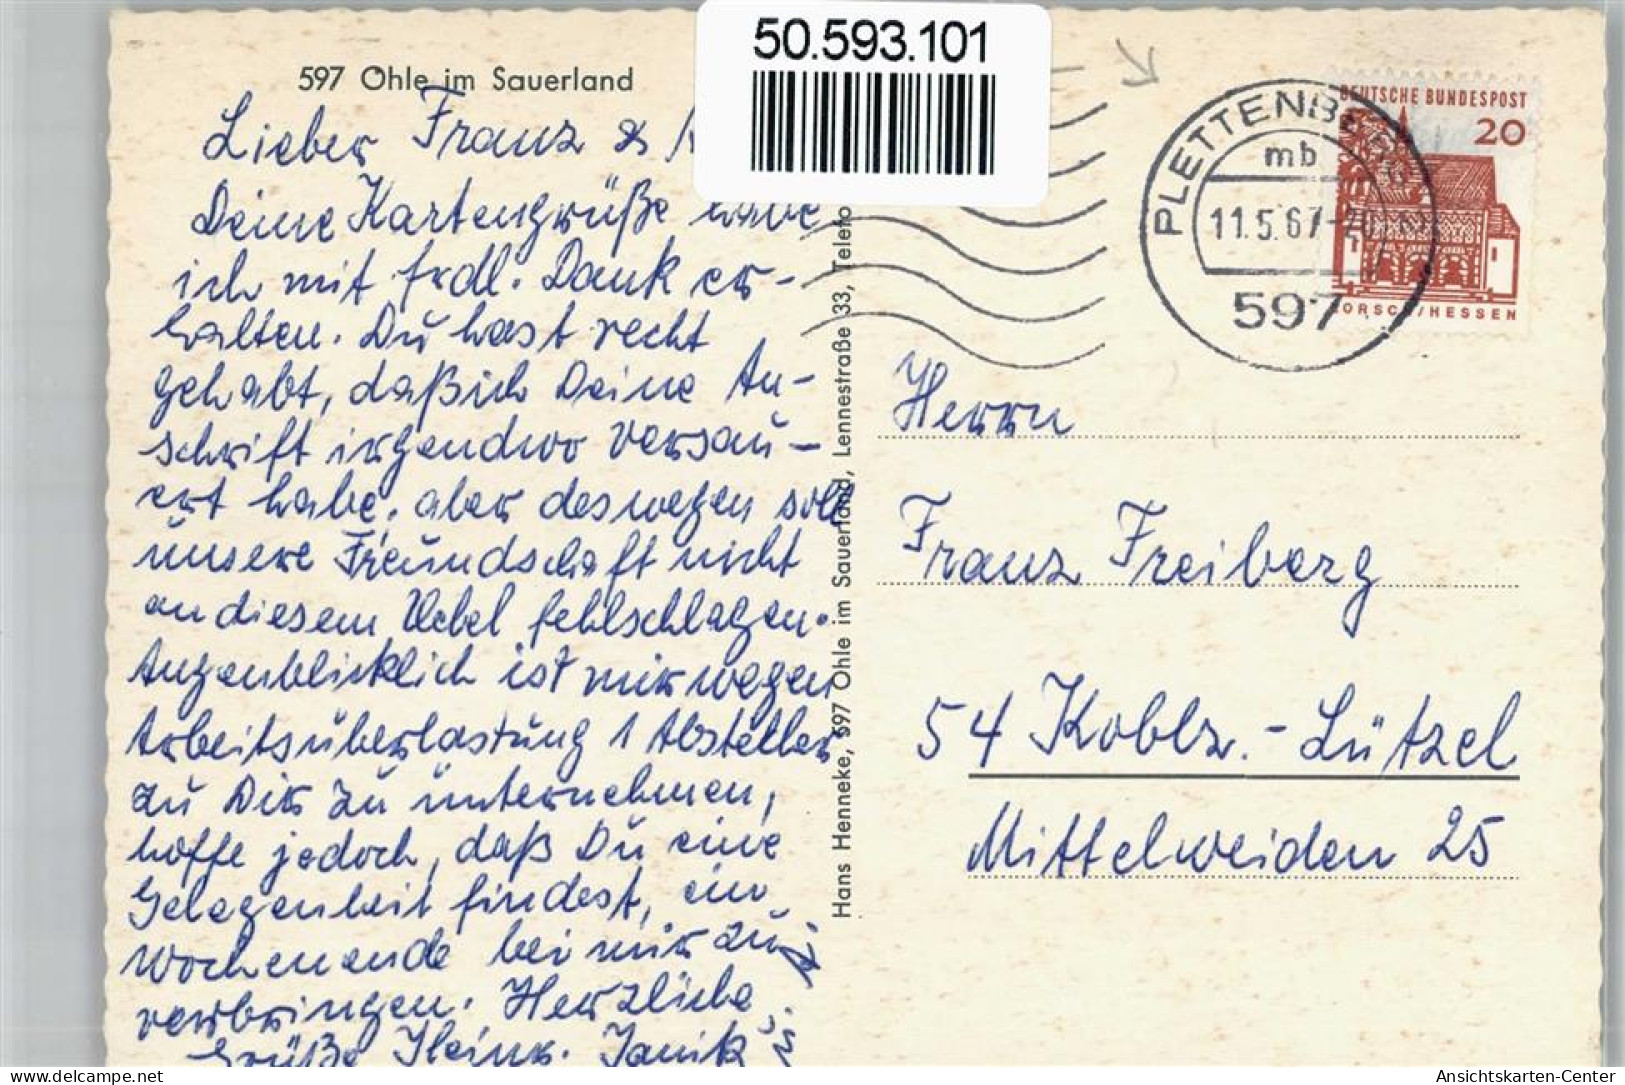 50.593.101
597 Ohle im Sauerland
Lieber Franz &
Deine Kartengrüße habe
ich mit frdl. Dank er-
halten. Du hast recht
gehabt, daß ich Deine An-
schrift irgendwo versau-
ert habe. aber deswegen soll
unsere Freundschaft nicht
an diesem Uebel fehlschlagen.
Augenblicklich ist mir wegen
Arbeitsüberlastung 1 Abstecher
zu Dir zu unternehmen,
hoffe jedoch, daß Du eine
Gelegenheit findest, ein
Wochenende bei mir zu
verbringen. Herzliche
Grüße Heinz.
Hans Henneke, 597 Ohle im Sauerland, Lennestraße 33, Telefo
PLETTENBERG
mb
11.5.67-20
597
DEUTSCHE BUNDESPOST
20
LORSCH/HESSEN
Herrn
Franz Freiberg
54 Koblz.-Lützel
Mittelweiden 25
delcampe.net
Ansichtskarten-Center